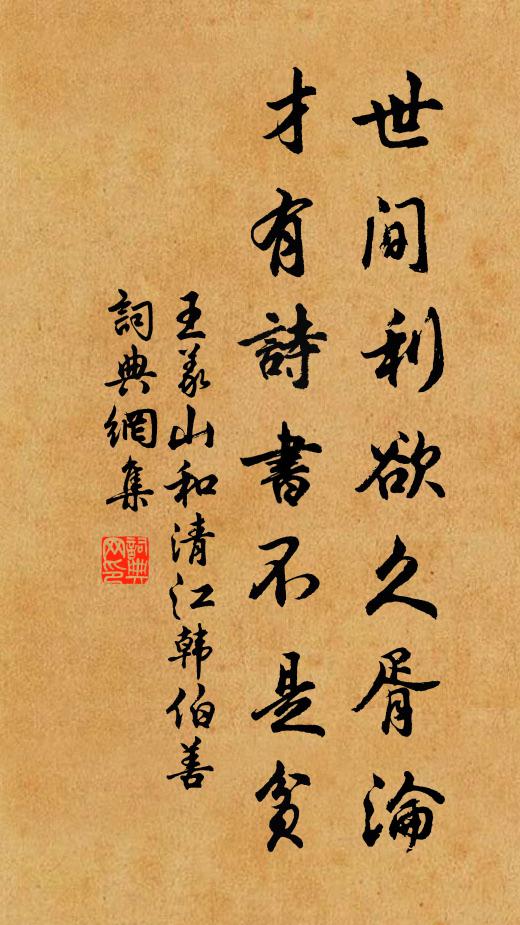 世间利欲久胥淪
才有詩書不是貧
王义山和清江韩伯善
詞典網集
詞典网印